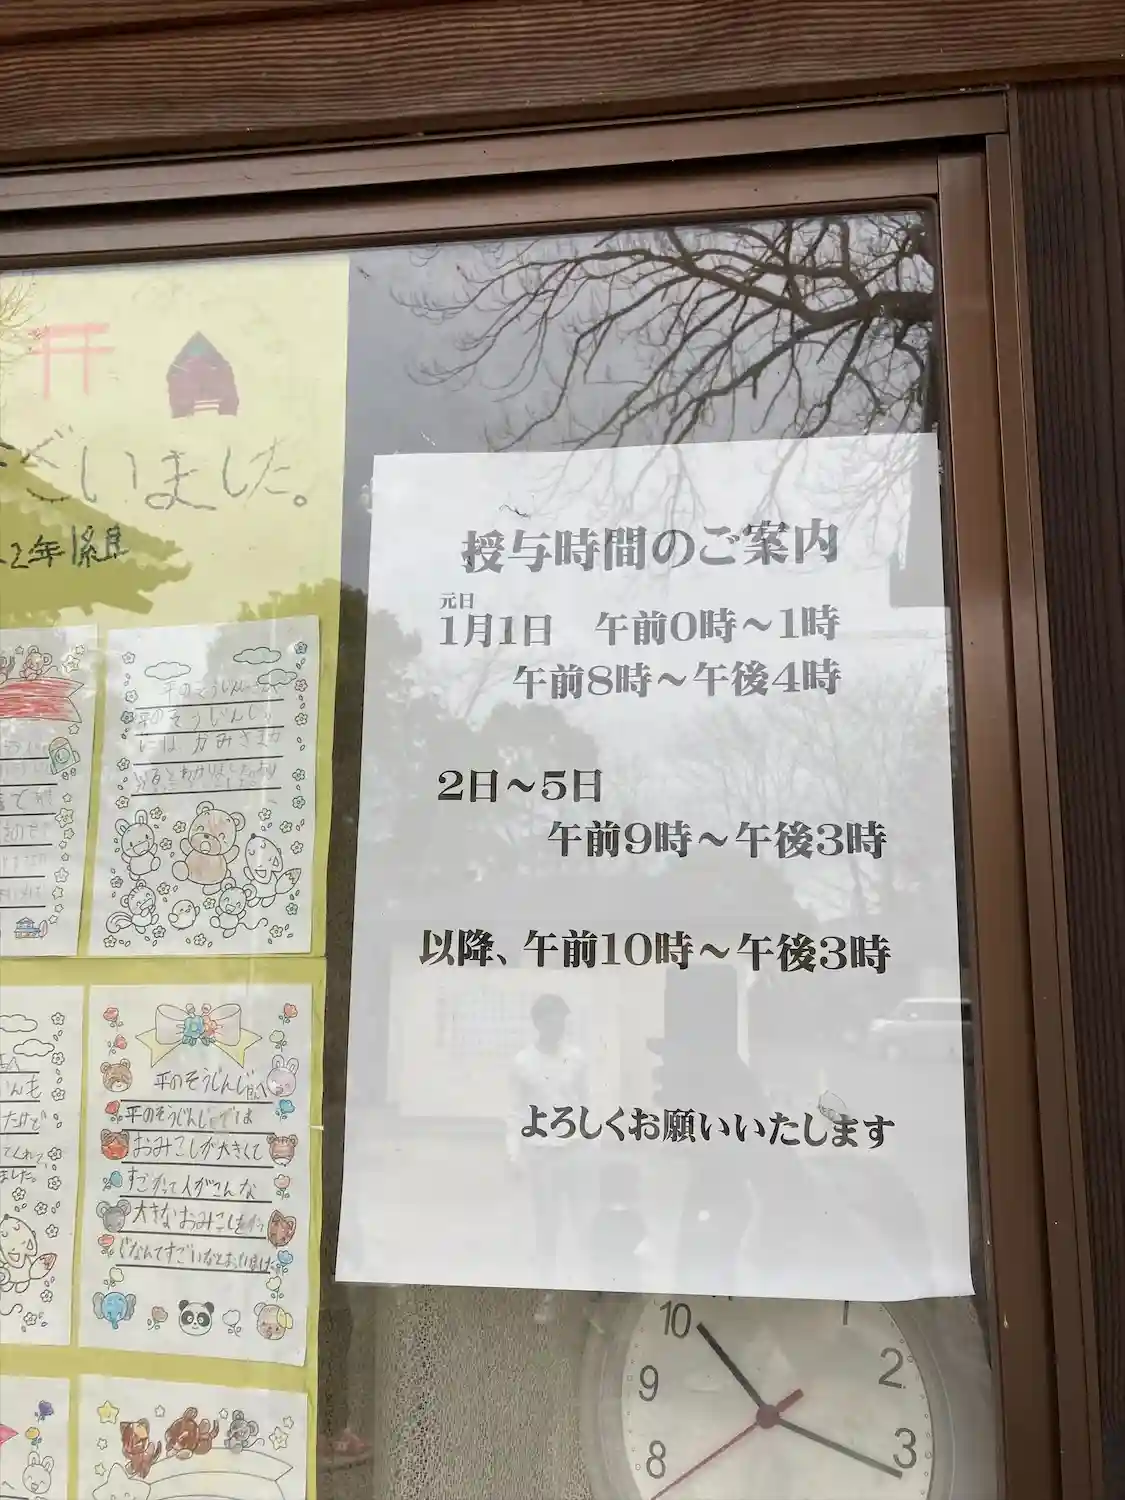 ございました。
2年1組
授与時間のご案内
元日
1月1日 午前0時～1時
午前8時～午後4時
2日～5日
午前9時～午後3時
以降、午前10時～午後3時
よろしくお願いいたします
平のそうじんじゃ
平のそうじんじゃ
には かみさまが
平のそうじんじゃ
平のそうじんじゃでは
おみこしが大きくて
すごかって人がこんな
大きなおみこしを
なんてすごいなとおもいました
10
1
2
9
3
8